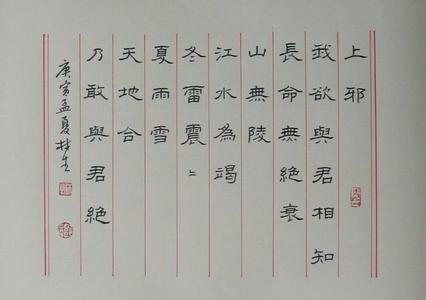 上邪
我欲與君相知
長命無絕衰
山無陵
江水為竭
冬雷震〻
夏雨雪
天地合
乃敢與君絕
庚寅孟夏